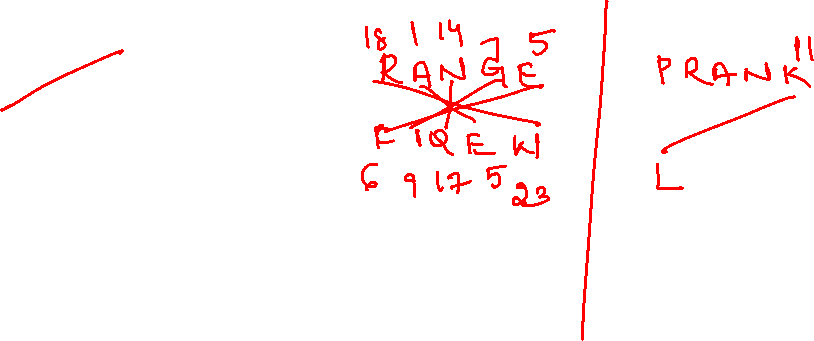 18 1 14 7 5
RANGE
FIQEW
6 9 17 5 23
11
PRANK
L